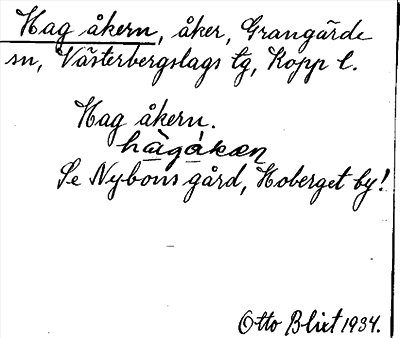 Hag åkern, åker, Grangärde
sn, Västerbergslags tg, Kopp l.
Hag åkern.
hàgåkæṇ
Se Nybons gård, Hoberget by!
Otto Blixt 1934.